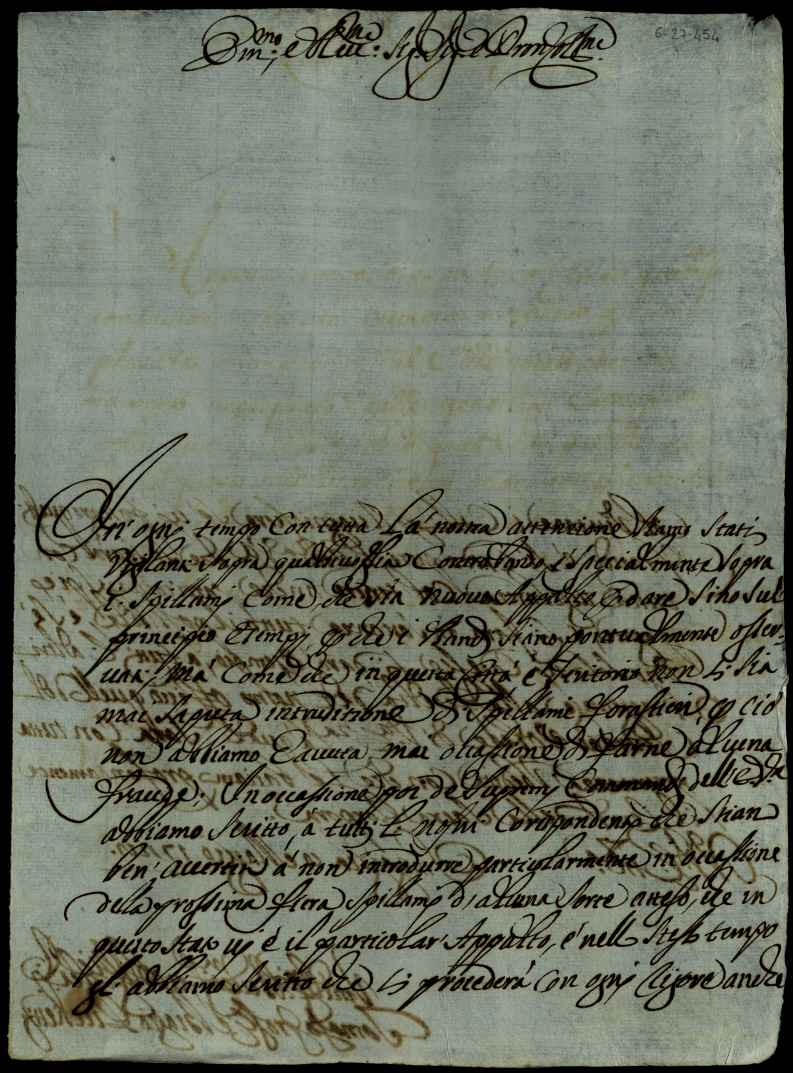 6-27-454
Em.mo, e R.mo Sig. Sig. e Pron Col.mo
In' ogni tempo Con tutta La' nostra attentione Siamo Stati
Vigilanti Sopra qualsivoglia Contrabando, e Specialmente Sopra
i Spillami Come che Sia nuovo Appalto, e dare Sino Sul
principio tempi che i Bandi Siano pontualmente osser-
vati: Ma' Come che in questa Città e Teritorio non Si Sia
mai Saputa introditione di Spillami forastieri, p ciò
non abbiamo havuta mai occasione di farne alcuna
fraude. In occassione poi de Supremi Commandi dell'
abbiamo Scritto, a tutti Li nostri Corispondenti che Stian
ben' avertiti à non introdurre particolarmente in occassione
dela prossima fiera Spillami d'alcuna Sorte atteso, che in
questo Stato vi è il particolar Appalto, e' nell Stesso tempo
gl' abbiamo Scritto che Si procederà con ogni Rigore anche